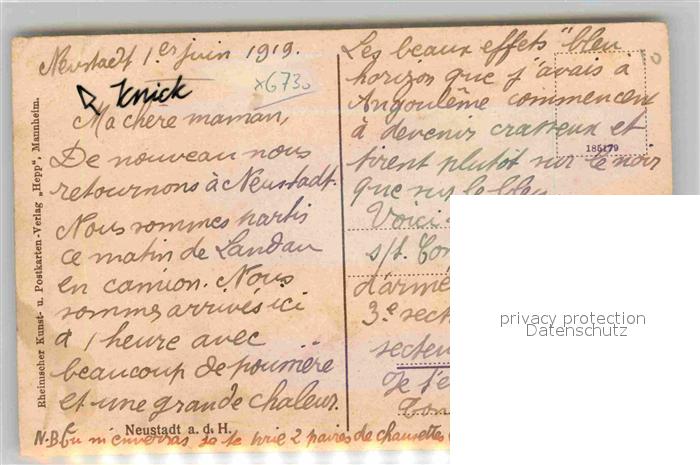 Neustadt 1er juin 1919.
x6730
Knick
Ma chère maman,
De nouveau nous
retournons à Neustadt.
Nous sommes partis
ce matin de Landau
en camion. Nous
sommes arrivés ici
à 1 heure avec
beaucoup de poumière
et une grande chaleur.
Neustadt a. d. H.
N-B tu m'enverras je te prie 2 paires de chausettes
Rheinischer Kunst- u. Postkarten-Verlag „Hepp", Mannheim.
Les beaux effets "bleu
horizon que j'avais a
Angoulême commencent
à devenir crasseux et
tirent plutôt sur le noir
que sur le bleu
185179
Voici
s/t.
d'armé
3e sect
secteu
Je t'e
privacy protection
Datenschutz